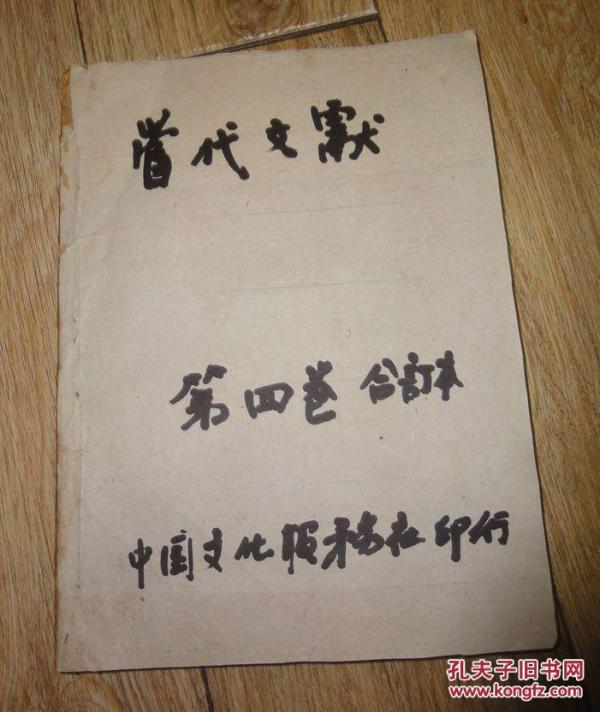 當代文獻
第四卷 合訂本
中国文化服务社印行
孔夫子旧书网
www.kongfz.com